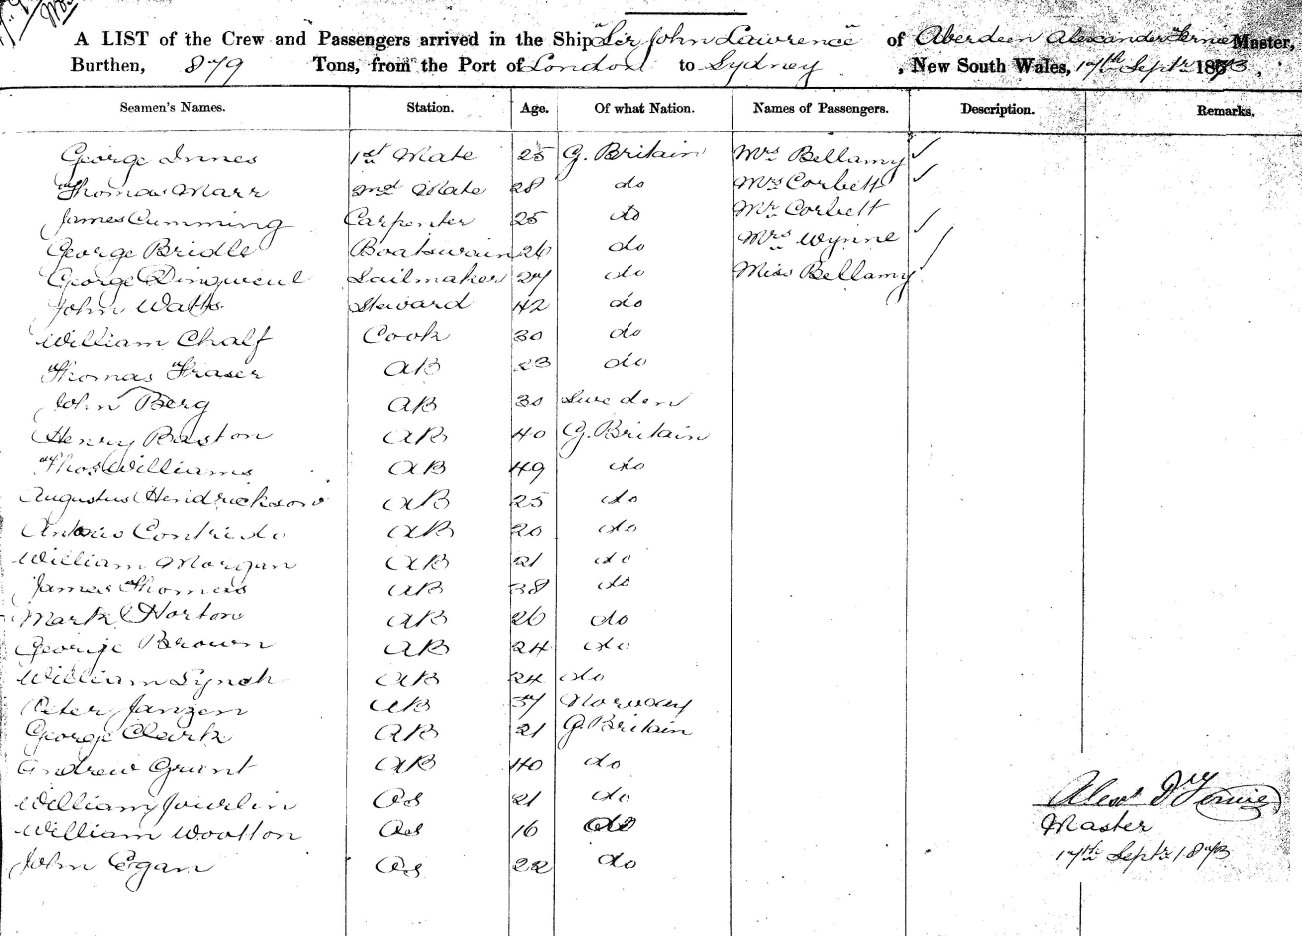 A LIST of the Crew and Passengers arrived in the Ship "Sir John Lawrence" of Aberdeen Alexander Master,
Burthen, 879 Tons, from the Port of London to Sydney, New South Wales, 17th Septr. 1873.
Seamen's Names. Station. Age. Of what Nation. Names of Passengers. Description. Remarks.
George Innes 1st Mate 25 G. Britain Mrs Bellamy ✓
Thomas Marr 2nd Mate 28 do Mrs Corbett ✓
James Cumming Carpenter 25 do Mr Corbett
George Bridle Boatswain 26 do Mrs Wynne ✓
George Sailmaker 27 do Miss Bellamy ✓
John Watts Steward 42 do
William Chalf Cook 30 do
Thomas Fraser AB 23 do
John Berg AB 30 Sweden
Henry Baston AB 40 G. Britain
Thos Williams AB 49 do
Augustus Hendrickson AB 25 do
AB 20 do
William Morgan AB 21 do
James Thomas AB 38 do
Mark Horton AB 26 do
George Brown AB 24 do
William Lynch AB 24 do
Peter Janzen AB 37 Norway
George Clark AB 21 G. Britain
Andrew Grant AB 40 do
William OS 21 do
William Wootton OS 16 do
John Egan OS 22 do
Alexr
Master
17th Septr 1873